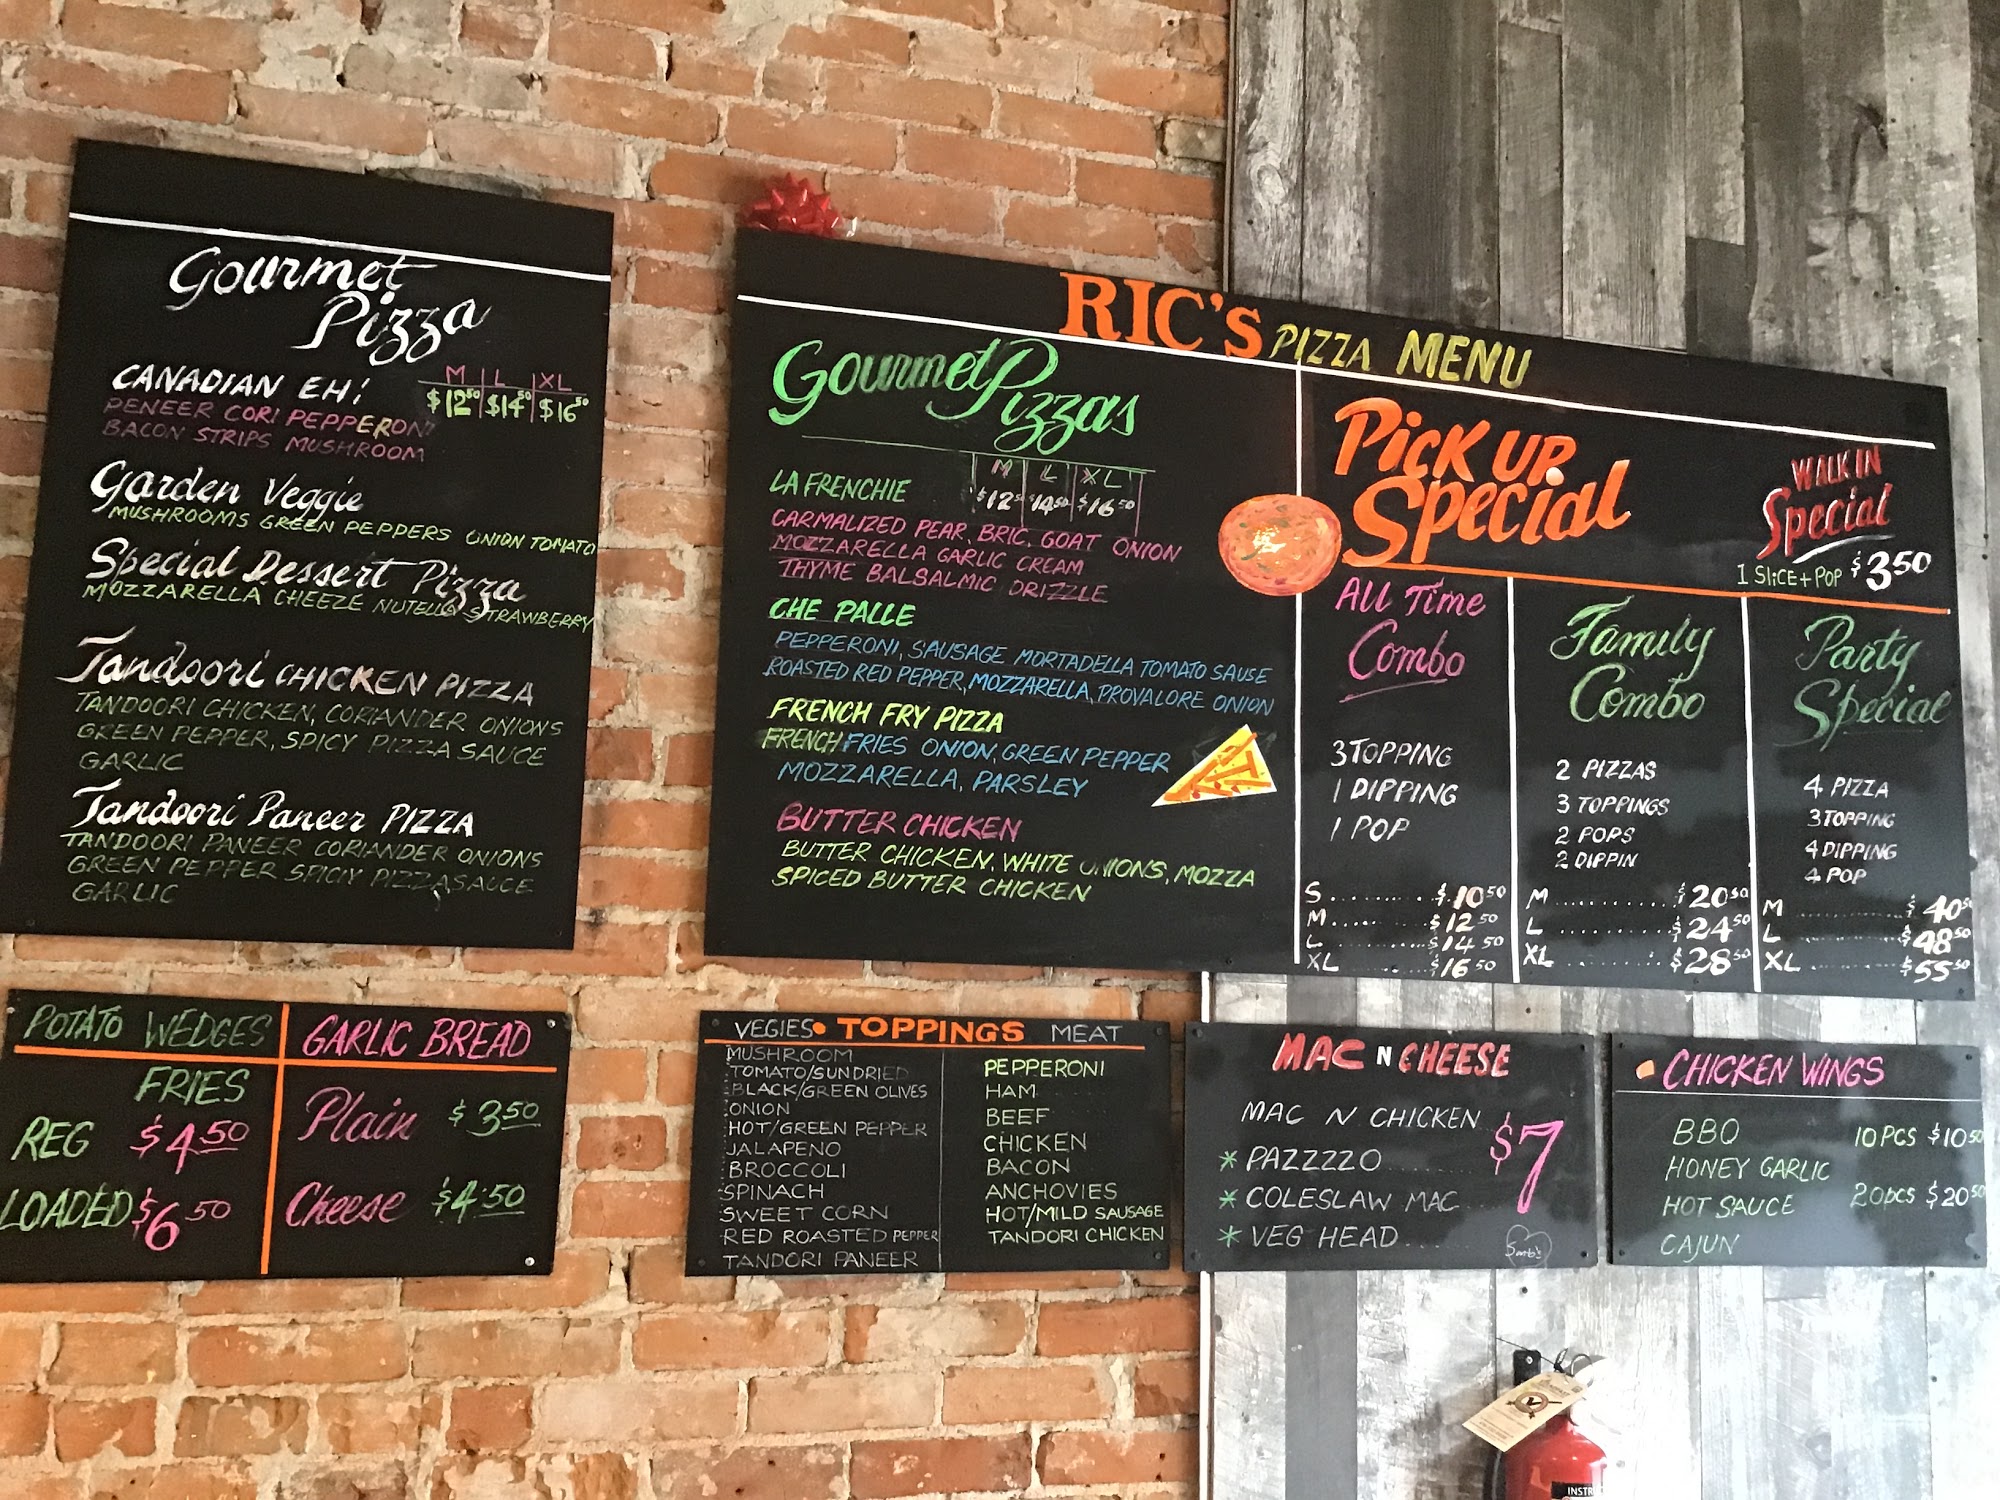 Gourmet
Pizza
CANADIAN EH!
M L XL
$12.50 $14.50 $16.50
PENEER CORI PEPPERONI
BACON STRIPS MUSHROOM
Garden Veggie
MUSHROOMS GREEN PEPPERS ONION TOMATO
Special Dessert Pizza
MOZZARELLA CHEEZE NUTELLA STRAWBERRY
Tandoori CHICKEN PIZZA
TANDOORI CHICKEN, CORIANDER ONIONS
GREEN PEPPER, SPICY PIZZA SAUCE
GARLIC
Tandoori Paneer PIZZA
TANDOORI PANEER CORIANDER ONIONS
GREEN PEPPER SPICIY PIZZA SAUCE
GARLIC
RIC'S PIZZA MENU
Gourmet Pizzas
M L XL
LA FRENCHIE $12.50 $14.50 $16.50
CARMALIZED PEAR, BRIC, GOAT ONION
MOZZARELLA GARLIC CREAM
THYME BALSALMIC DRIZZLE
CHE PALLE
PEPPERONI, SAUSAGE MORTADELLA TOMATO SAUSE
ROASTED RED PEPPER, MOZZARELLA, PROVALORE ONION
FRENCH FRY PIZZA
FRENCH FRIES ONION, GREEN PEPPER
MOZZARELLA, PARSLEY
BUTTER CHICKEN
BUTTER CHICKEN, WHITE ONIONS, MOZZA
SPICED BUTTER CHICKEN
PICK UP
Special
WALK IN
Special
1 SLICE + POP $3.50
All Time
Combo
3 TOPPING
1 DIPPING
1 POP
S $10.50
M $12.50
L $14.50
XL $16.50
Family
Combo
2 PIZZAS
3 TOPPINGS
2 POPS
2 DIPPIN
M $20.50
L $24.50
XL $28.50
Party
Special
4 PIZZA
3 TOPPING
4 DIPPING
4 POP
M $40.50
L $48.50
XL $55.50
POTATO WEDGES
FRIES
REG $4.50
LOADED $6.50
GARLIC BREAD
Plain $3.50
Cheese $4.50
VEGIES • TOPPINGS MEAT
MUSHROOM
TOMATO/SUNDRIED
BLACK/GREEN OLIVES
ONION
HOT/GREEN PEPPER
JALAPENO
BROCCOLI
SPINACH
SWEET CORN
RED ROASTED PEPPER
TANDORI PANEER
PEPPERONI
HAM
BEEF
CHICKEN
BACON
ANCHOVIES
HOT/MILD SAUSAGE
TANDORI CHICKEN
MAC N CHEESE
MAC N CHICKEN
* PAZZZZO
* COLESLAW MAC
* VEG HEAD
$7
• CHICKEN WINGS
BBQ
HONEY GARLIC
HOT SAUCE
CAJUN
10 PCS $10.50
20 pcs $20.50
INSTR